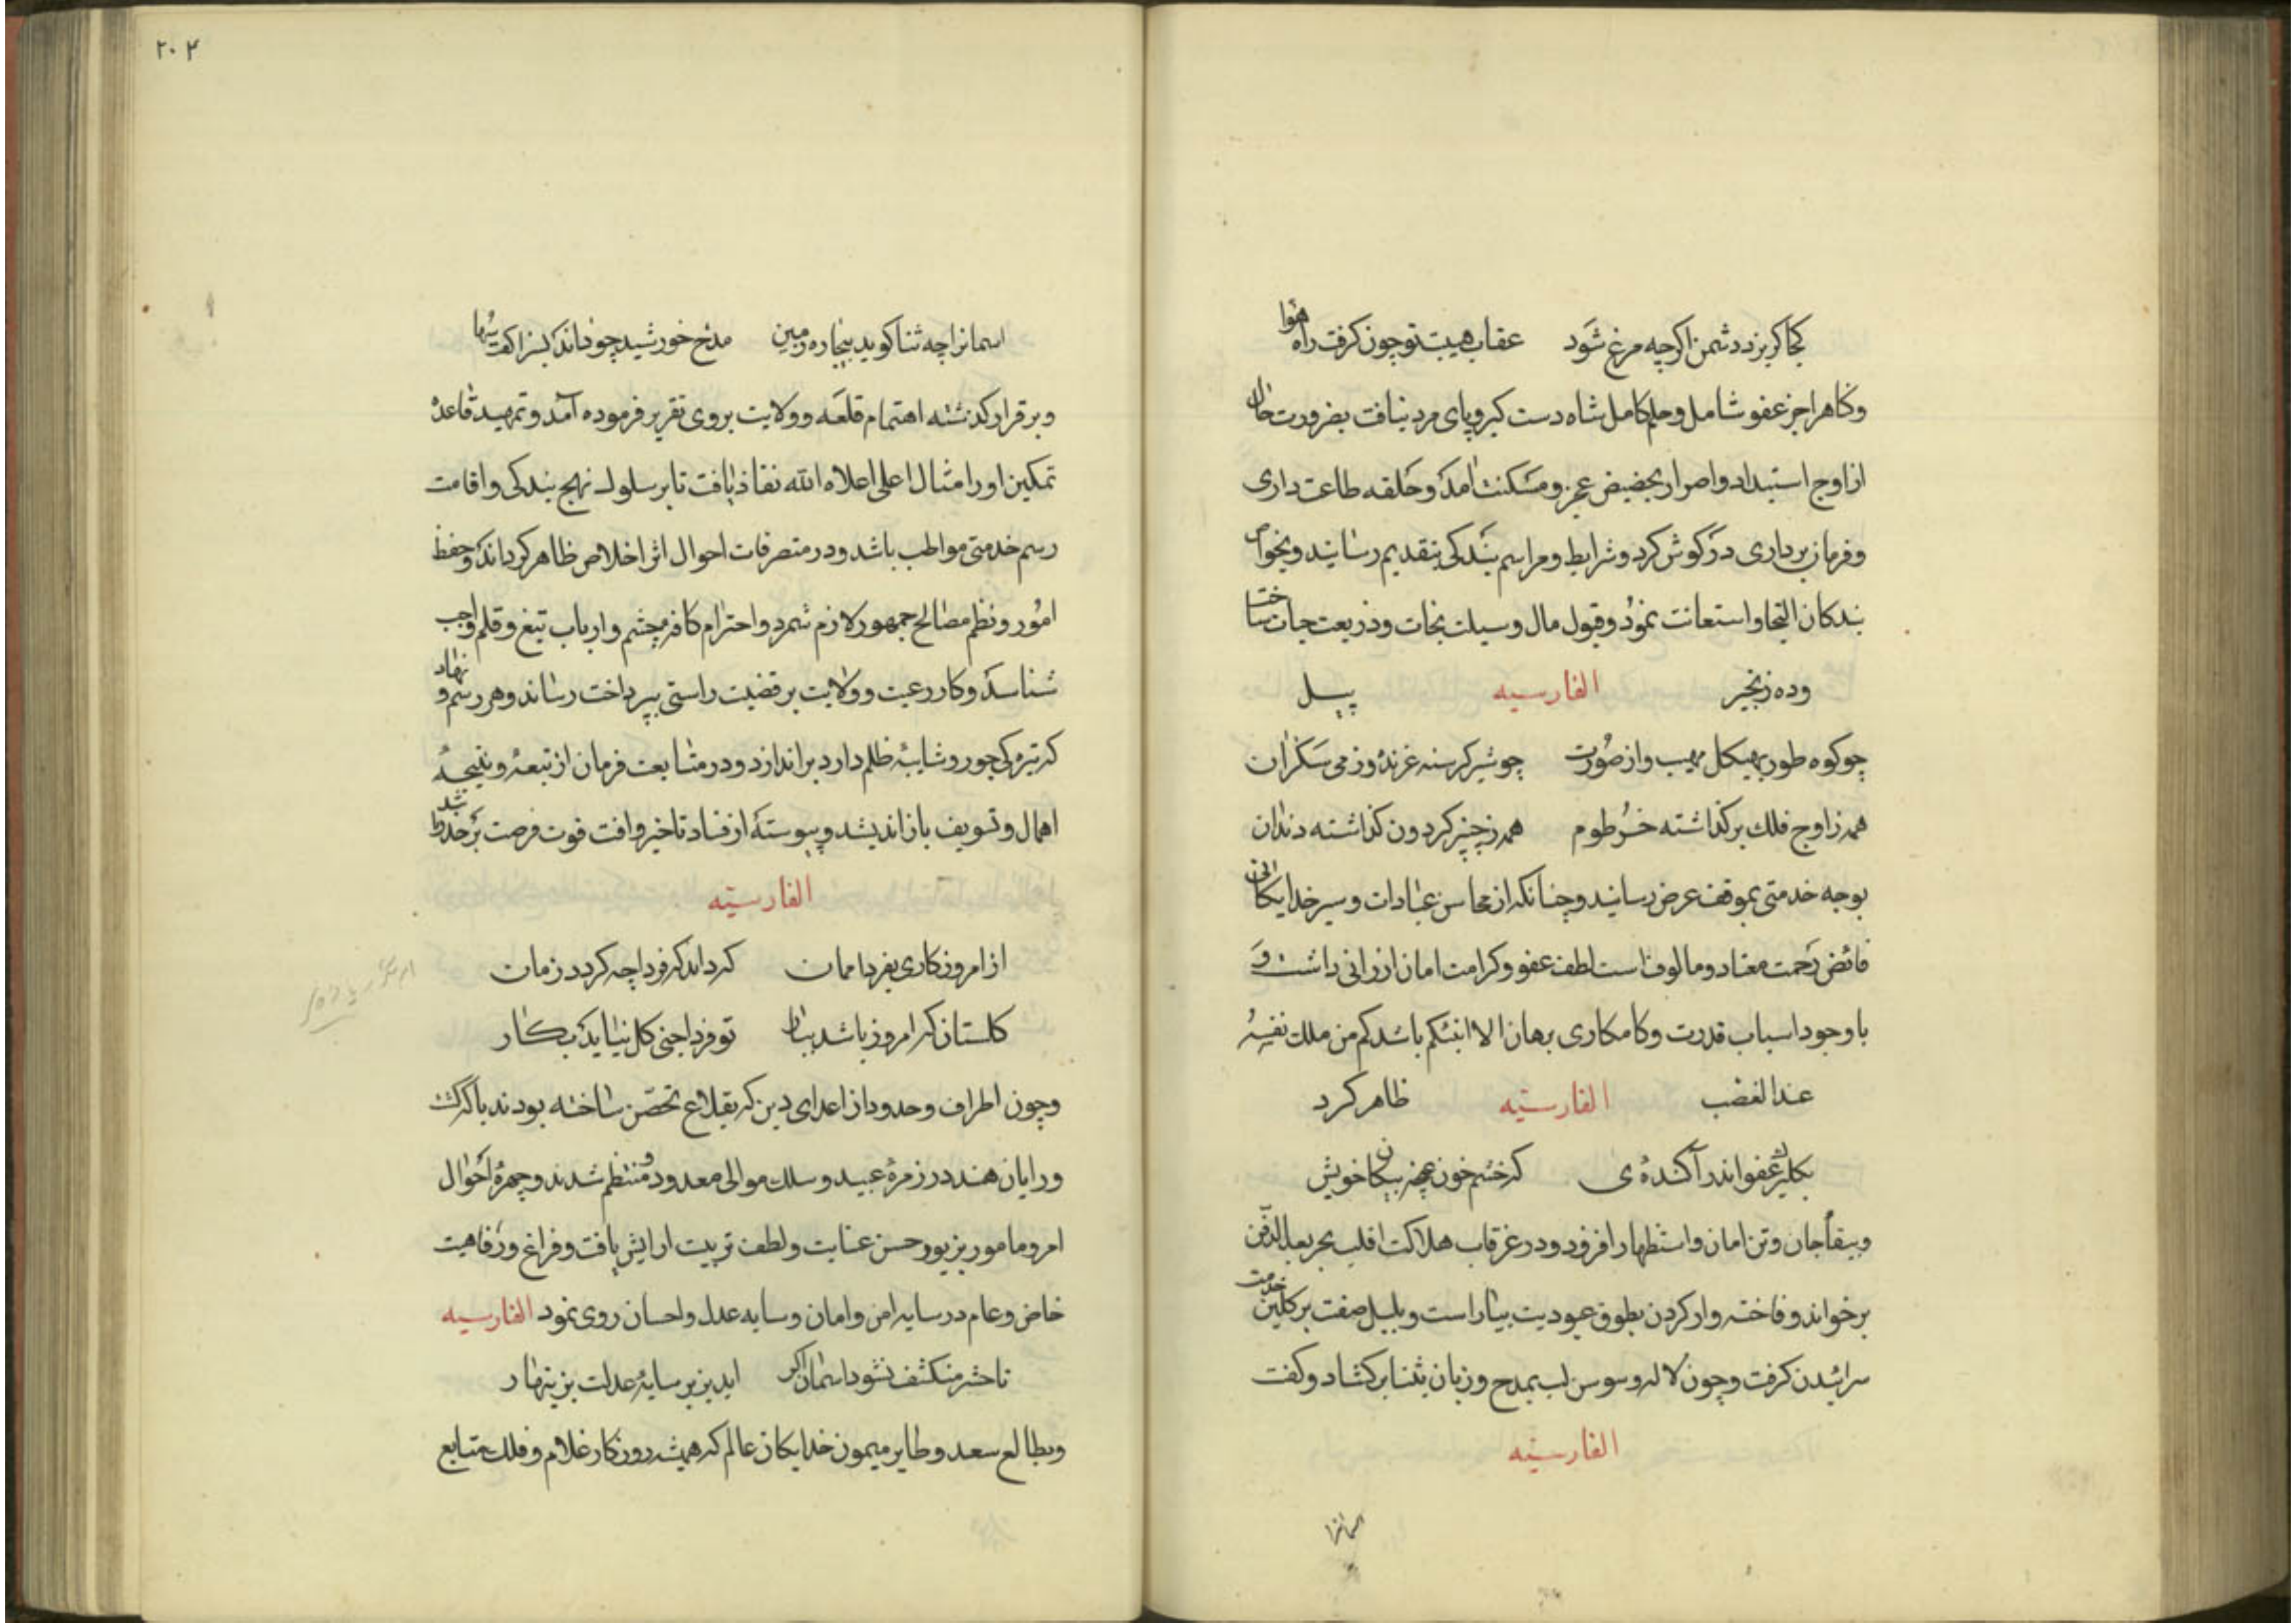 کجا کریزد دشمن اکرچه مرغ شود عقاب هیبت تو چون کرفت راه هوا
وناهرا جز عفو شامل وحلم کامل شاه دست کیر وپای مرد نیافت بضرورت حال
از اوج استبداد واصرار بحضیض عجز ومسکنت امد وحلقه طاعت داری
وفرمان برداری در کوش کرد وشرایط ومراسم بندکی بتقدیم رسانید وبخواص
بندکان التجا واستعانت نمود وقبول مال وسیلت نجات وذریعت حیات ساخت
وده زنجیر الفارسیه پیل
چو کوه طور بهیکل مهیب واز صورت چو شیر کرسنه غرنده وز می سکران
همه ز اوج فلک بر کذاشته خرطوم همه ز چنبر کردون کذاشته دندان
بوجه خدمتی بموقف عرض رسانید وچنانکه از محاسن عادات وسیر خدایکانی
فائض رحمت معتاد ومالوف است لطف عفو وکرامت امان ارزانی داشت و
با وجود اسباب قدرت وکامکاری برهان الا انبئکم باشدکم من ملک نفسه
عند الغضب الفارسیه ظاهر کرد
بکلبن عفو اندر آکنده ی که خشم خون بپیکان خویش
وببقاء جان وتن امان واستظهار افزود ودر غرقاب هلاکت
برخواند وفاخته وار کردن بطوق عبودیت بیاراست وبلبل صفت بر کلبن خدمت
سرائیدن کرفت وچون لاله وسوسن لب بمدح وزبان بثنا برکشاد وکفت
الفارسیه
اسمانرا
۲۰۴
اسمانرا چه ثنا کوید بیچاره زمین مدح خورشید چو داند بسزا کفت سها
وبر قرار کذشته اهتمام قلعه وولایت بروی تقریر فرموده آمد وتمهید قاعدۀ
تمکین اورا مثال اعلی اعلاه الله نفاذ یافت تا بر سلوک نهج بندکی واقامت
رسم خدمتی مواظب باشد ودر متصرفات احوال اثر اخلاص ظاهر کرداند وحفظ
امور ونظم مصالح جمهور لازم شمرد واحترام کافه حشم وارباب تیغ وقلم واجب
شناسد وکار رعیت وولایت بر قضیت راستی بپرداخت رساند وهر رسم ونهاد
که تیرکی جور وشایبۀ ظلم دارد براندازد ودر متابعت فرمان از تبعه ونتیجۀ
اهمال وتسویف باز اندیشد وپیوسته از فساد تاخیر وافت فوت فرصت بر حذر باشد
الفارسیه
از امروز کاری بفردا ممان که داند که فردا چه کردد زمان
کلستان که امروز باشد ببار تو فردا چنی کل نیاید بکار
وچون اطراف وحدود از اعدای دین که بقلاع تحصن ساخته بودند پاک کشت
ورایان هند در زمرۀ عبید وسلک موالی معدود ومنتظم شدند وچهرۀ احوال
امر ومامور بزیور حسن عنایت ولطف تربیت ارایش یافت وفراغ ورفاهیت
خاص وعام در سایه امن وامان وسایه عدل واحسان روی نمود الفارسیه
تا حشر منکشف نشود اسمان اکر اید بزیر سایۀ عدلت بزینهار
وبطالع سعد وطایر میمون خدایکان عالم که همیشه روزکار غلام وفلک متابع